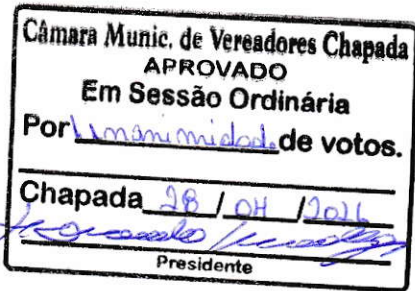 Câmara Munic. de Vereadores Chapada
APROVADO
Em Sessão Ordinária
Por Unanimidade de votos.
Chapada 28 / 04 /
Presidente